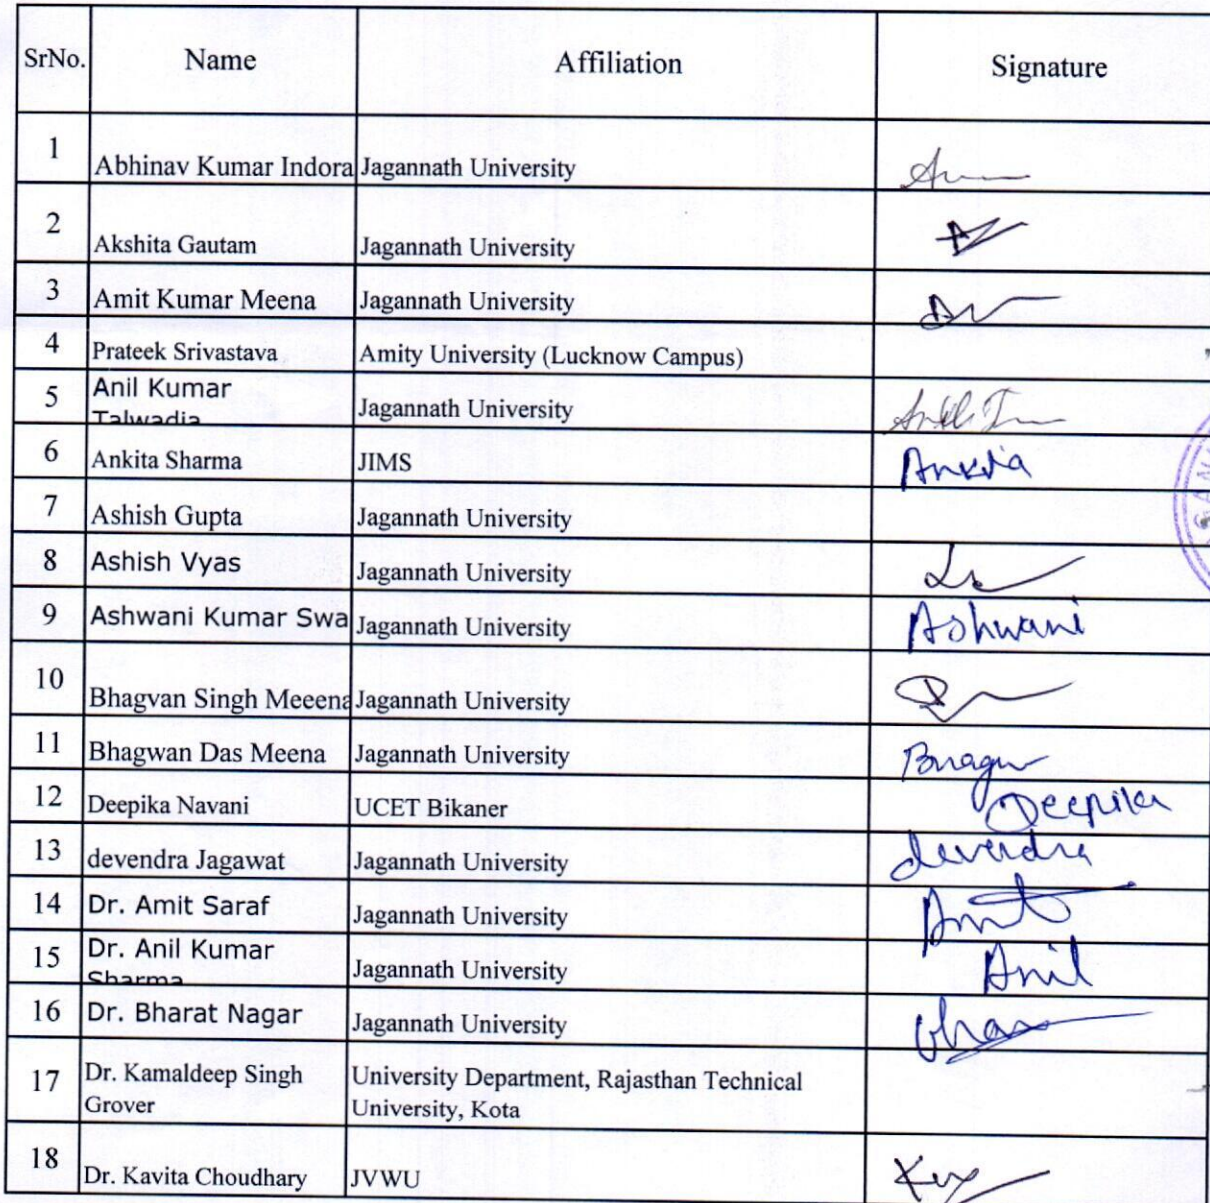 SrNo. Name Affiliation Signature
1 Abhinav Kumar Indora Jagannath University
2 Akshita Gautam Jagannath University
3 Amit Kumar Meena Jagannath University
4 Prateek Srivastava Amity University (Lucknow Campus)
5 Anil Kumar
Talwadia Jagannath University
6 Ankita Sharma JIMS Ankita
7 Ashish Gupta Jagannath University
8 Ashish Vyas Jagannath University
9 Ashwani Kumar Swa Jagannath University Ashwani
10 Bhagvan Singh Meeena Jagannath University
11 Bhagwan Das Meena Jagannath University
12 Deepika Navani UCET Bikaner Deepika
13 devendra Jagawat Jagannath University devendra
14 Dr. Amit Saraf Jagannath University Amit
15 Dr. Anil Kumar
Sharma Jagannath University Anil
16 Dr. Bharat Nagar Jagannath University
17 Dr. Kamaldeep Singh University Department, Rajasthan Technical
Grover University, Kota
18 Dr. Kavita Choudhary JVWU